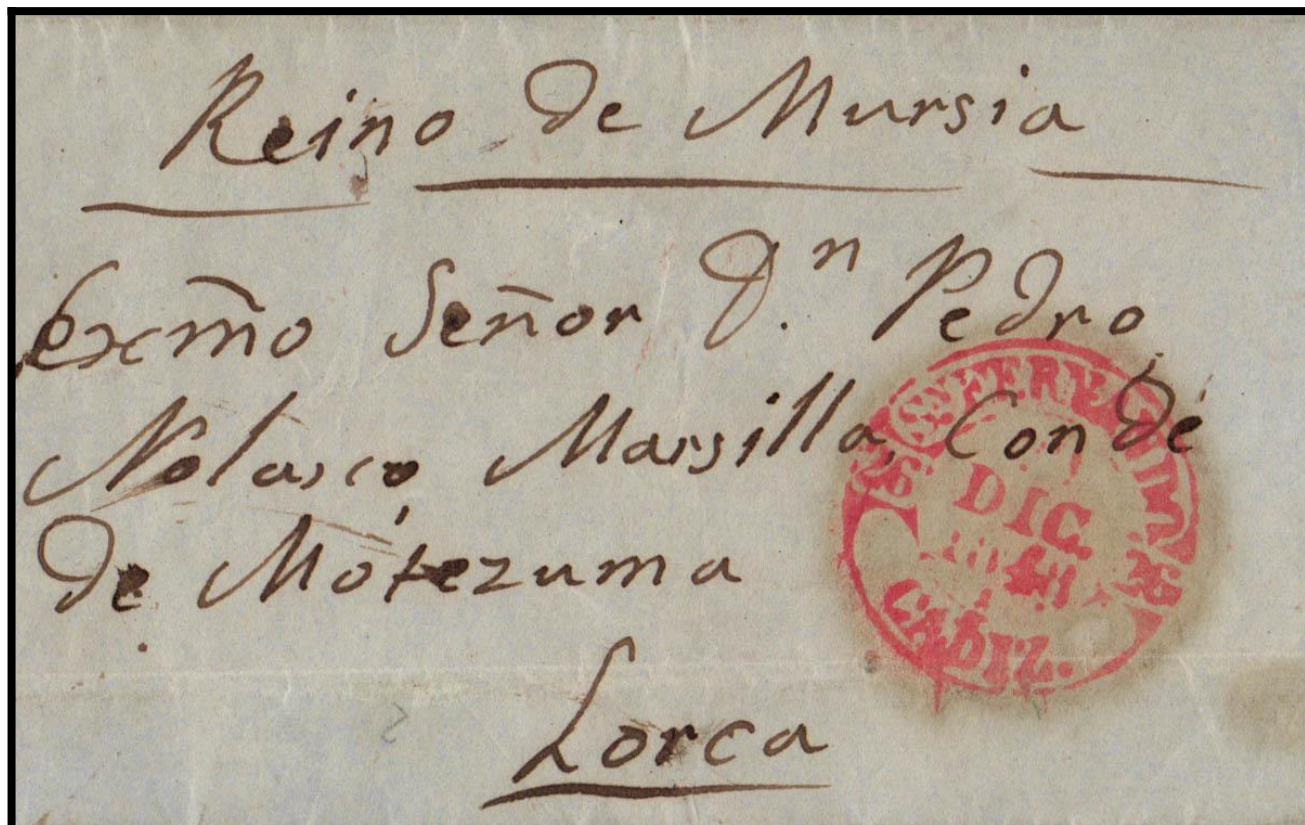 Reino de Mursia
Excm̃o Señor D.ⁿ Pedro
Nolasco Marsilla, Conde
de Motezuma
Lorca
26 DIC. 26
CADIZ.